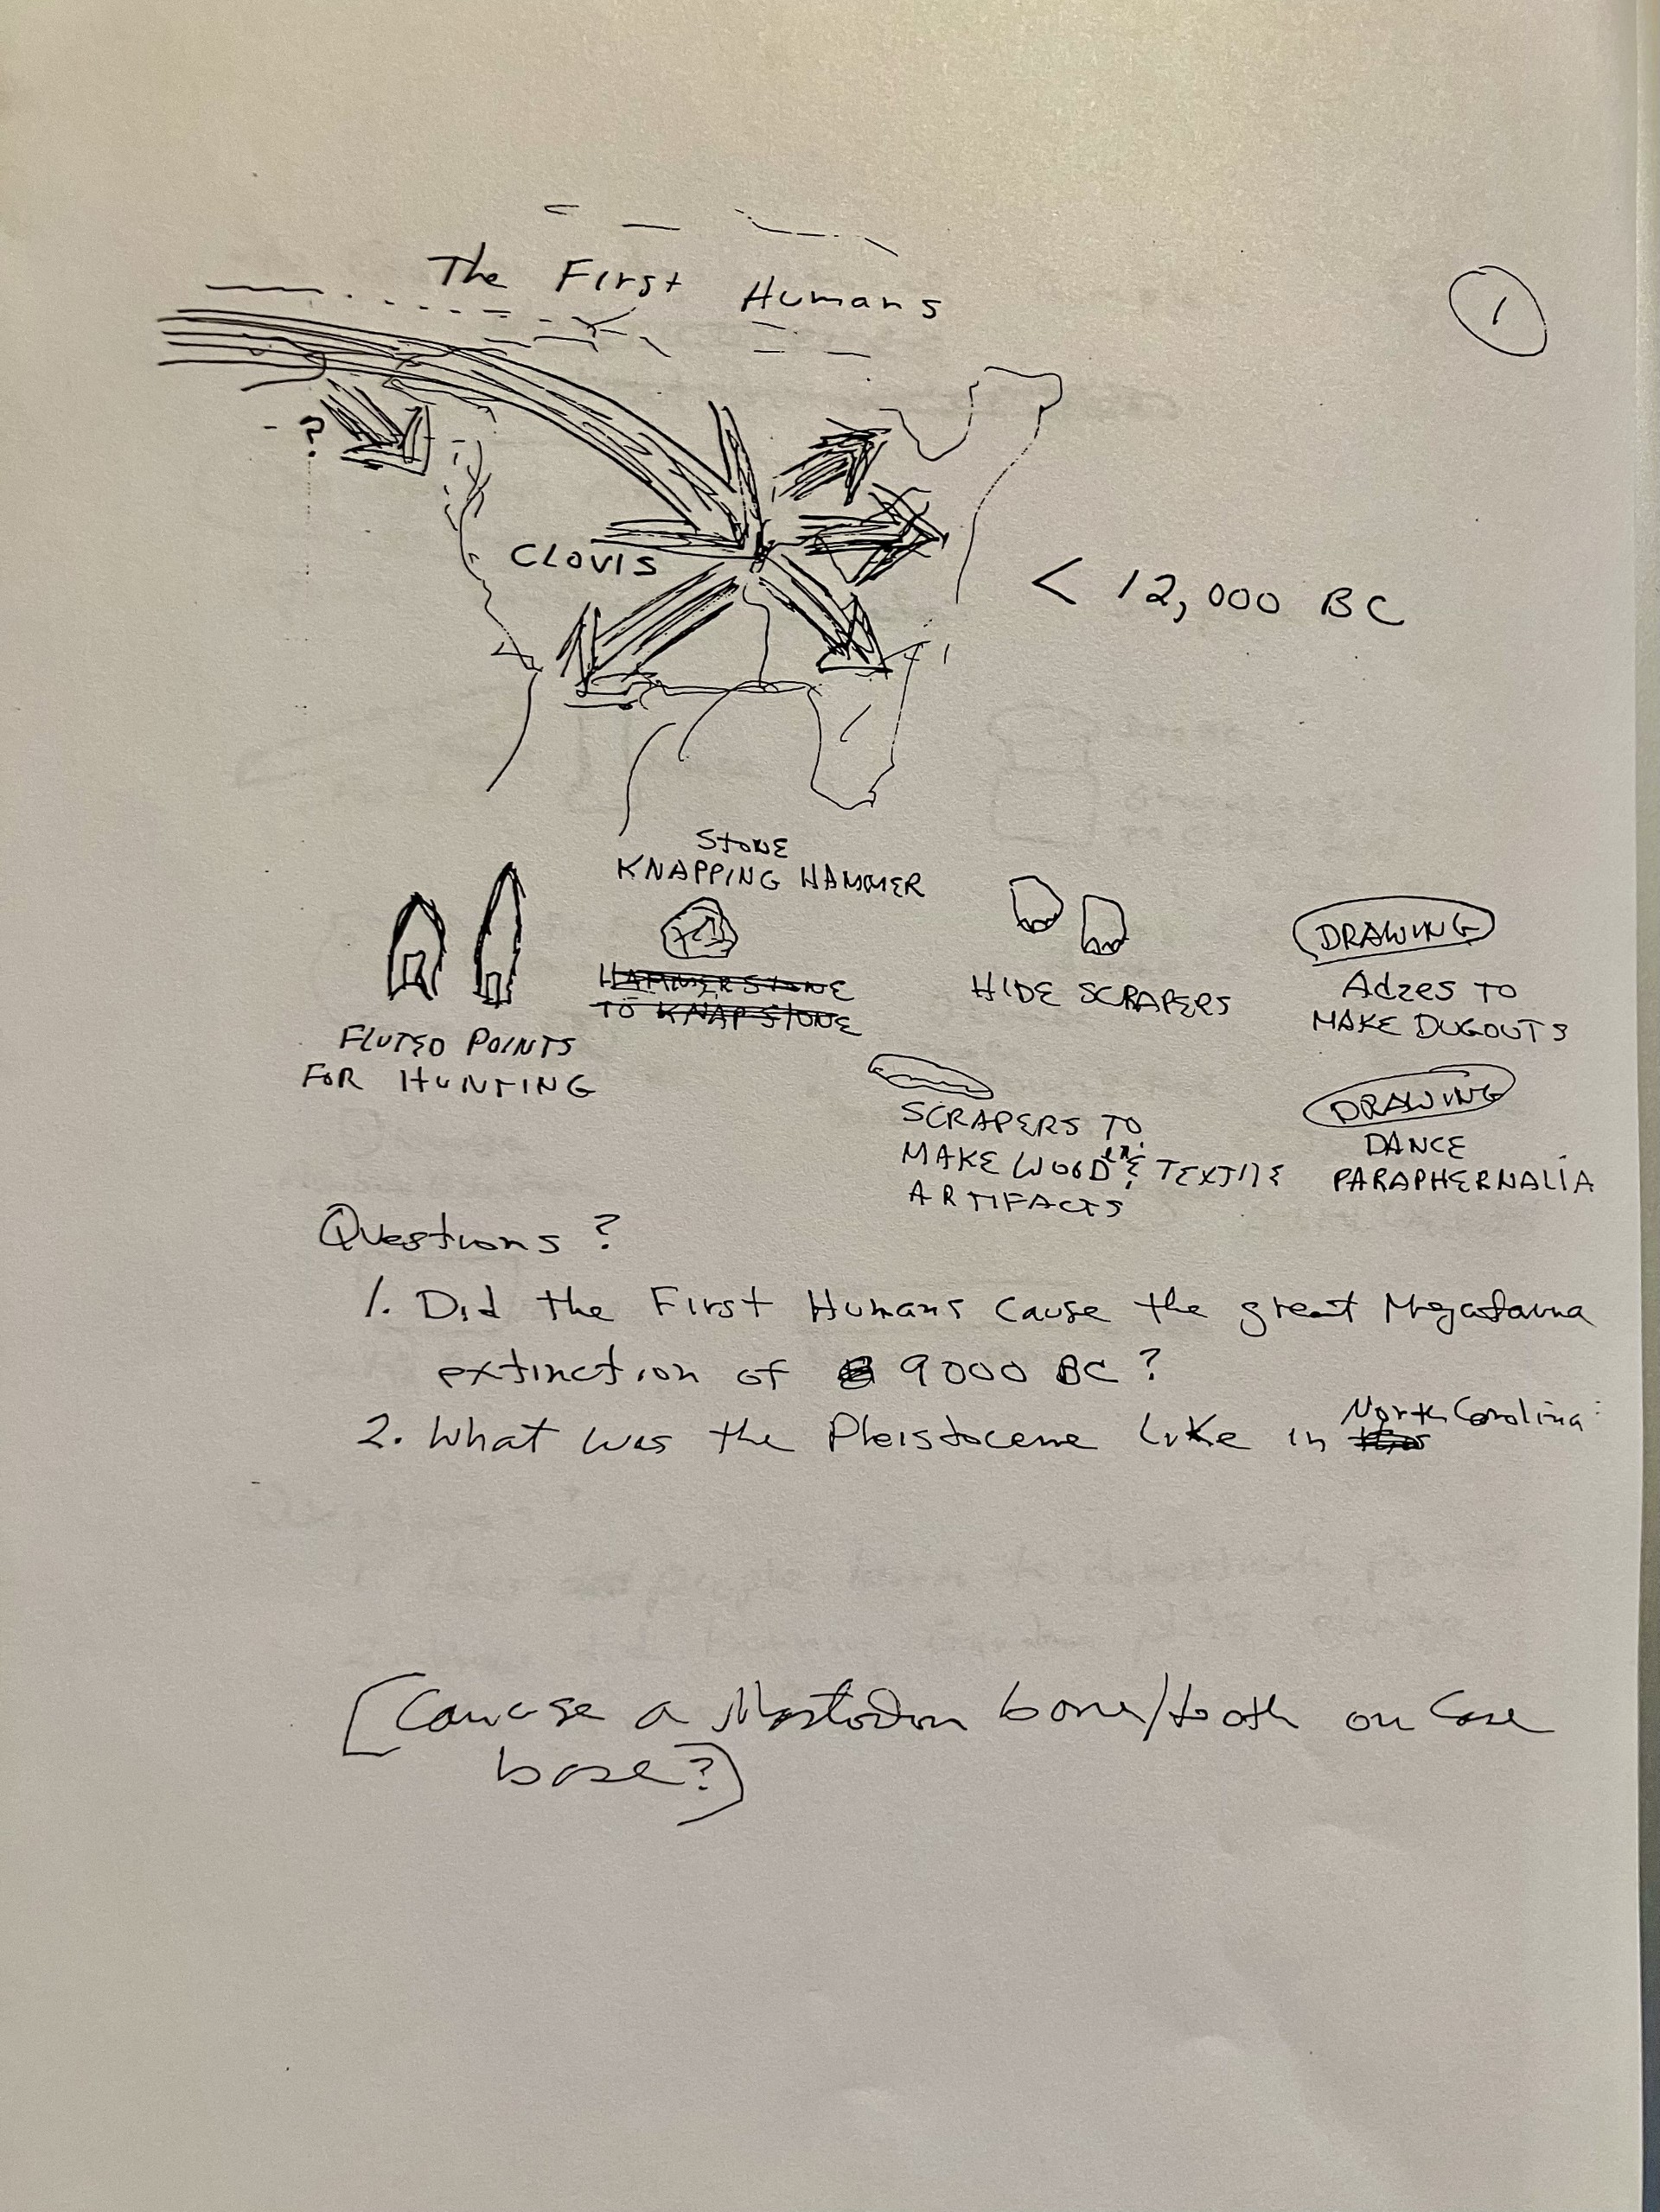 The First Humans
1
?
CLOVIS
< 12,000 BC
STONE
KNAPPING HAMMER
HAMMERSTONE
TO KNAP STONE
FLUTED POINTS
FOR HUNTING
HIDE SCRAPERS
DRAWING
Adzes TO
MAKE DUGOUTS
SCRAPERS TO
MAKE WOODEN & TEXTILE
ARTIFACTS
DRAWING
DANCE
PARAPHERNALIA
Questions?
1. Did the First Humans cause the great Megafauna
extinction of 9000 BC?
2. What was the Pleistocene like in North Carolina
[Can use a Mastodon bone/tooth on case
base?]